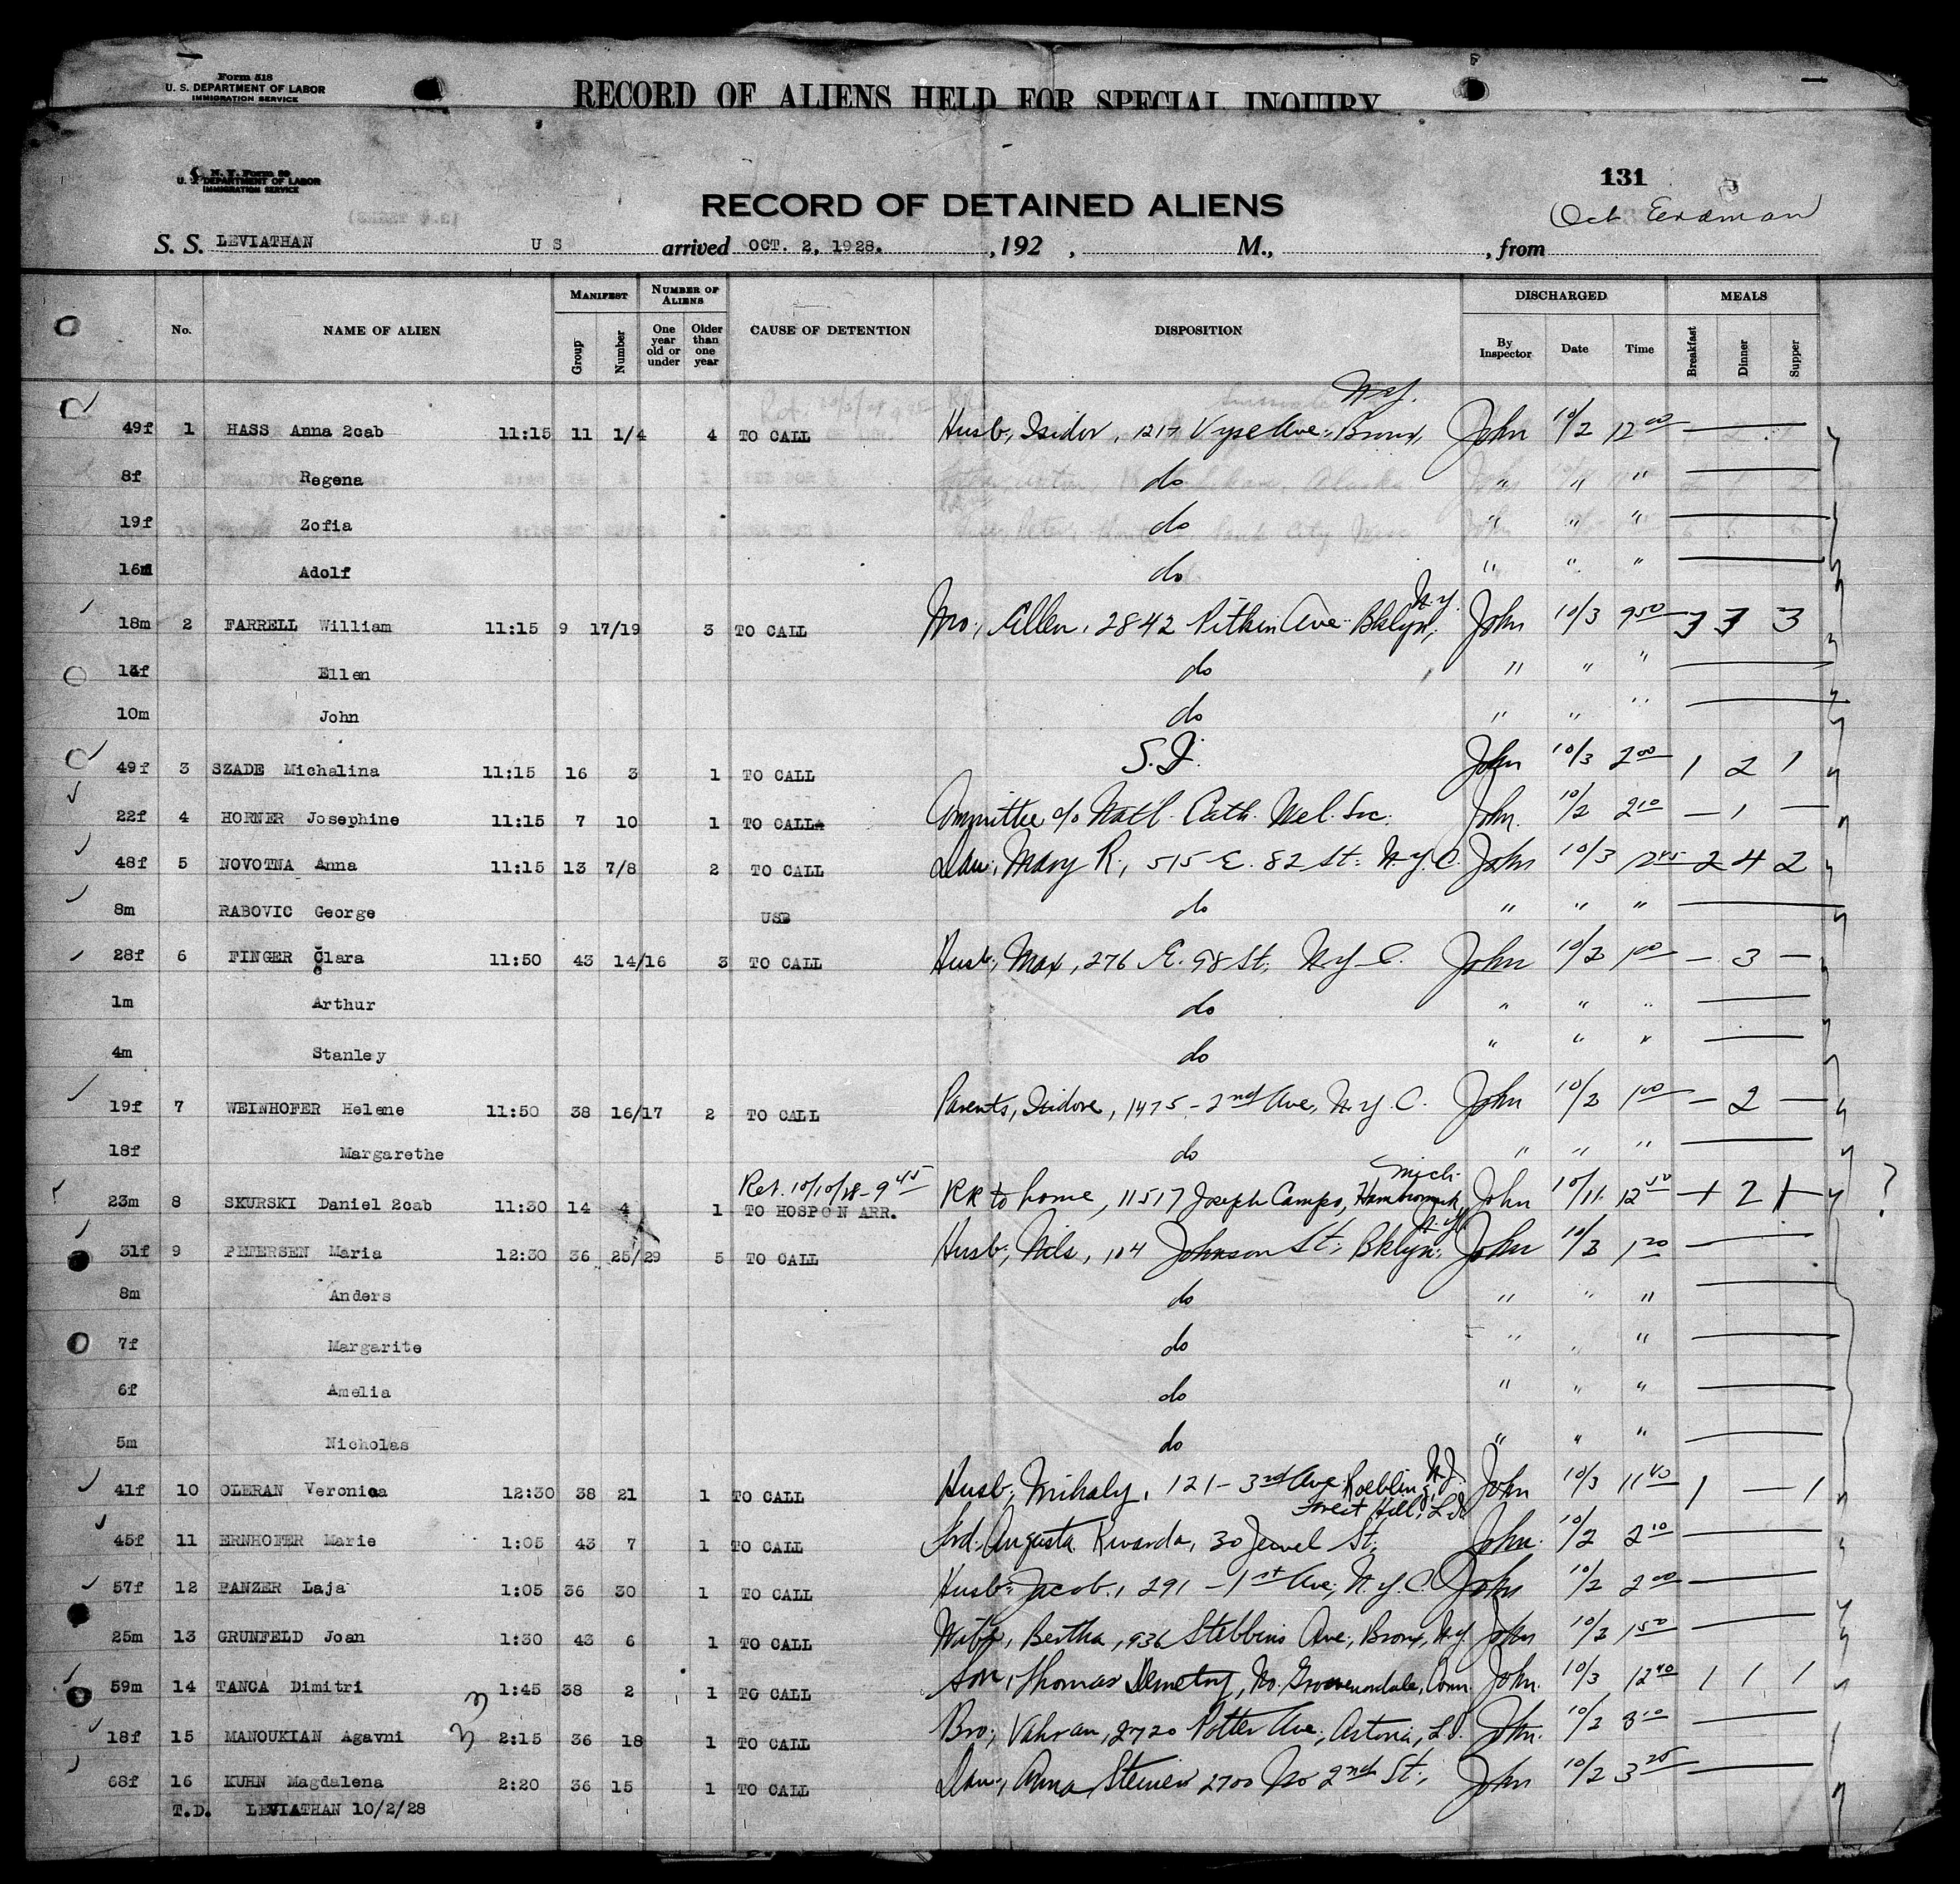 Form 518
U. S. DEPARTMENT OF LABOR
IMMIGRATION SERVICE
RECORD OF ALIENS HELD FOR SPECIAL INQUIRY
N. Y. Form 50
U. S. DEPARTMENT OF LABOR
IMMIGRATION SERVICE
131
RECORD OF DETAINED ALIENS
Oct Erdman
S. S. LEVIATHAN U S arrived OCT. 2, 1928. , 192 , M., , from
No. NAME OF ALIEN MANIFEST Group Number NUMBER OF ALIENS One year old or under Older than one year CAUSE OF DETENTION DISPOSITION DISCHARGED By Inspector Date Time MEALS Breakfast Dinner Supper
N.Y.
49f 1 HASS Anna 2cab 11:15 11 1/4 4 TO CALL Husb, Isidor, 1217 Vyse Ave., Bronx, John 10/2 12 00
8f Regena do " " "
19f Zofia do " " "
16m Adolf do " " "
N.Y.
18m 2 FARRELL William 11:15 9 17/19 3 TO CALL Mo, Ellen, 2842 Pitkin Ave. Bklyn, John 10/3 9 50 3 3 3
14f Ellen do " " "
10m John do " " "
49f 3 SZADE Michalina 11:15 16 3 1 TO CALL S.I. John 10/3 2 00 1 2 1
22f 4 HORNER Josephine 11:15 7 10 1 TO CALL Committee c/o Natl. Cath. Wel. Soc. John. 10/2 2 10 — 1 —
48f 5 NOVOTNA Anna 11:15 13 7/8 2 TO CALL Dau, Mary R, 515 E. 82 St. N.Y.C. John 10/3 12 45 2 4 2
8m RABOVIC George USB do " " "
28f 6 FINGER Clara 11:50 43 14/16 3 TO CALL Husb, Max, 276 E. 98 St, N.Y.C. John 10/2 1 00 — 3 —
1m Arthur do " " "
4m Stanley do " " "
19f 7 WEINHOFER Helene 11:50 38 16/17 2 TO CALL Parents, Isidore, 1475 - 2nd Ave, N.Y.C. John 10/2 1 00 — 2 —
18f Margarethe do " " "
Ret. 10/10/28 - 9 45 Mich.
23m 8 SKURSKI Daniel 2cab 11:30 14 4 1 TO HOSP ON ARR. RR to home, 11517 Joseph Campo, Hamtramck, John 10/11 12 50 1 2 1 ?
N.Y.
31f 9 PETERSEN Maria 12:30 36 25/29 5 TO CALL Husb, Nils, 104 Johnson St, Bklyn, John 10/2 1 20
8m Anders do " " "
7f Margarite do " " "
6f Amelia do " " "
5m Nicholas do " " "
N.J.
41f 10 OLERAN Veronica 12:30 38 21 1 TO CALL Husb, Mihaly, 121 - 3rd Ave Roebling, John 10/3 11 40 1 — 1
Forest Hill, L.I.
45f 11 ERNHOFER Marie 1:05 43 7 1 TO CALL Frd. Augusta 30 Jewel St. John. 10/2 2 10
57f 12 PANZER Laja 1:05 36 30 1 TO CALL Husb: Jacob, 291 - 1st Ave, N.Y.C. John 10/2 2 00
25m 13 GRUNFELD Joan 1:30 43 6 1 TO CALL Wife, Bertha, 936 Stebbins Ave, Bronx, N.Y. John 10/2 1 50
59m 14 TANCA Dimitri 1:45 38 2 1 TO CALL Son, Thomas Demetry, No. Grosvenordale, Conn. John. 10/3 12 40 1 1 1
33
18f 15 MANOUKIAN Agavni 2:15 36 18 1 TO CALL Bro, Vahran, 2720 Potter Ave, Astoria, L.I. John. 10/2 3 10
68f 16 KUHN Magdalena 2:20 36 15 1 TO CALL Dau, Anna Steiner 2700 No 2nd St, John 10/2 3 25
T.D. LEVIATHAN 10/2/28